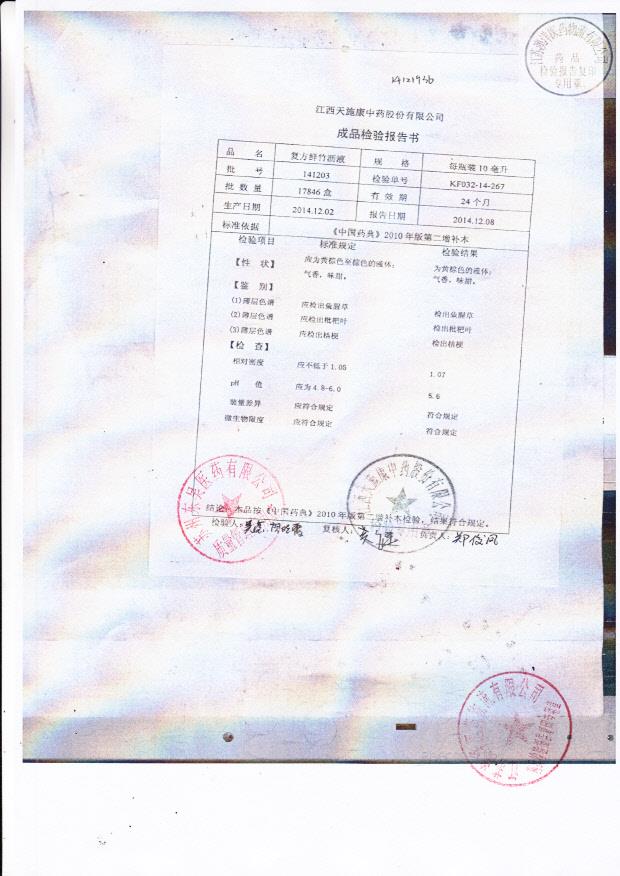 14121936
药品
检验报告复印
专用章
江西天施康中药股份有限公司
成品检验报告书
品 名 复方鲜竹沥液 规 格 每瓶装 10 毫升
批 号 141203 检验单号 KF032-14-267
批 数 量 17846 盒 有 效 期 24 个月
生产日期 2014.12.02 报告日期 2014.12.08
标准依据 《中国药典》2010 年版第二增补本
检验项目 标准规定 检验结果
【性 状】 应为黄棕色至棕色的液体; 为黄棕色的液体;
气香,味甜。 气香,味甜。
【鉴 别】
(1)薄层色谱 应检出鱼腥草 检出鱼腥草
(2)薄层色谱 应检出枇杷叶 检出枇杷叶
(3)薄层色谱 应检出桔梗 检出桔梗
【检 查】
相对密度 应不低于 1.05 1.07
pH 值 应为 4.8-6.0 5.6
装量差异 应符合规定 符合规定
微生物限度 应符合规定 符合规定
江西天施康中药股份有限公司
结论:本品按《中国药典》2010 年版第二增补本检验,结果符合规定。
检验人: 复核人: 负责人: 郑俊风